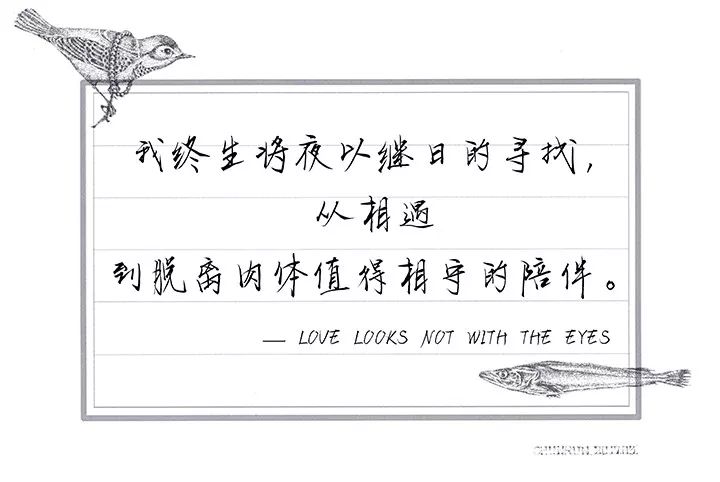 我终生将夜以继日的寻找，
从相遇
到脱离肉体值得相守的陪伴。
— LOVE LOOKS NOT WITH THE EYES